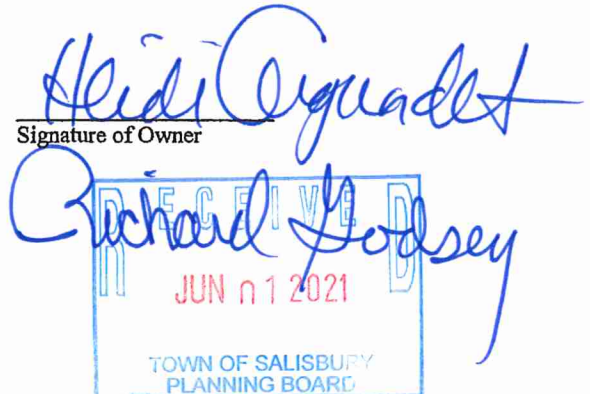 Heidi
Signature of Owner
Richard Godsey
RECEIVED
JUN 01 2021
TOWN OF SALISBURY
PLANNING BOARD